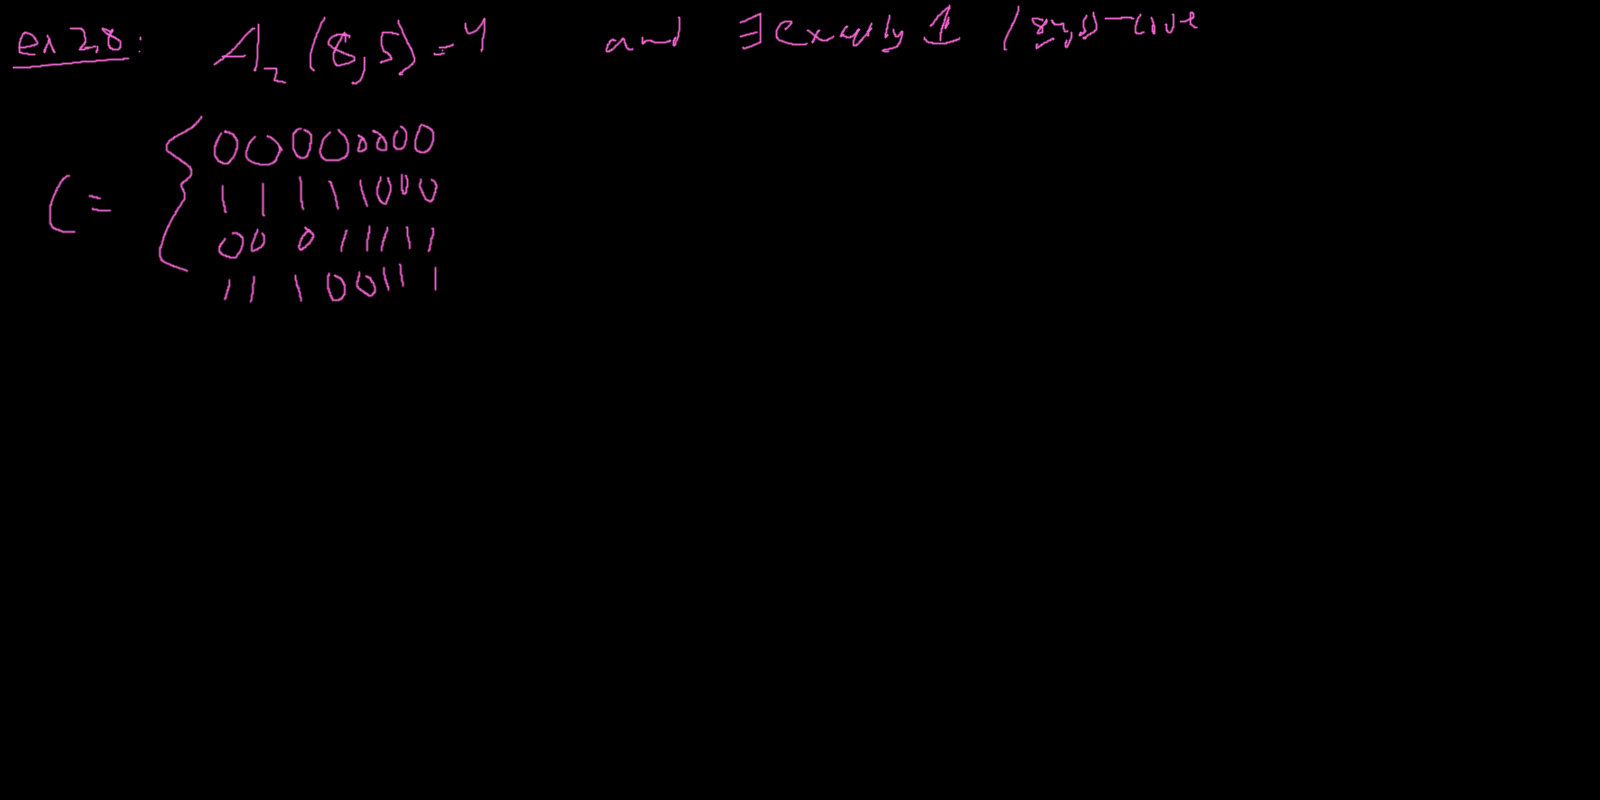 ex 2.8: A₂(8,5)=4 and ∃ exactly 1 (8,4,5)-code
C = { 00000000
11111000
00011111
11100111